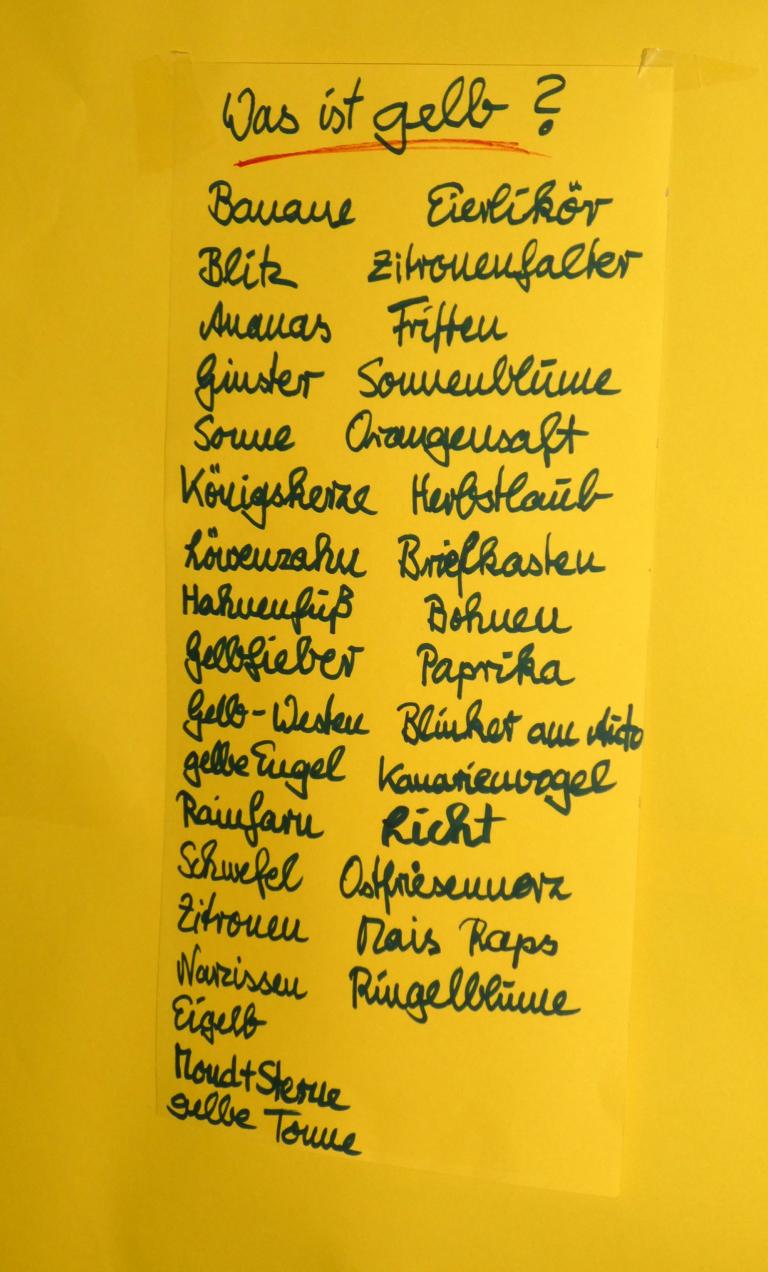 Was ist gelb?
Banane Eierlikör
Blitz Zitronenfalter
Ananas Fritten
Ginster Sonnenblume
Sonne Orangensaft
Königskerze Herbstlaub
Löwenzahn Briefkasten
Hahnenfuß Bohnen
Gelbfieber Paprika
Gelb-Westen Blinker am Auto
gelbe Engel Kanarienvogel
Rainfarn Licht
Schwefel Ostfriesennerz
Zitronen Mais Raps
Narzissen Ringelblume
Eigelb
Mond+Sterne
gelbe Tonne